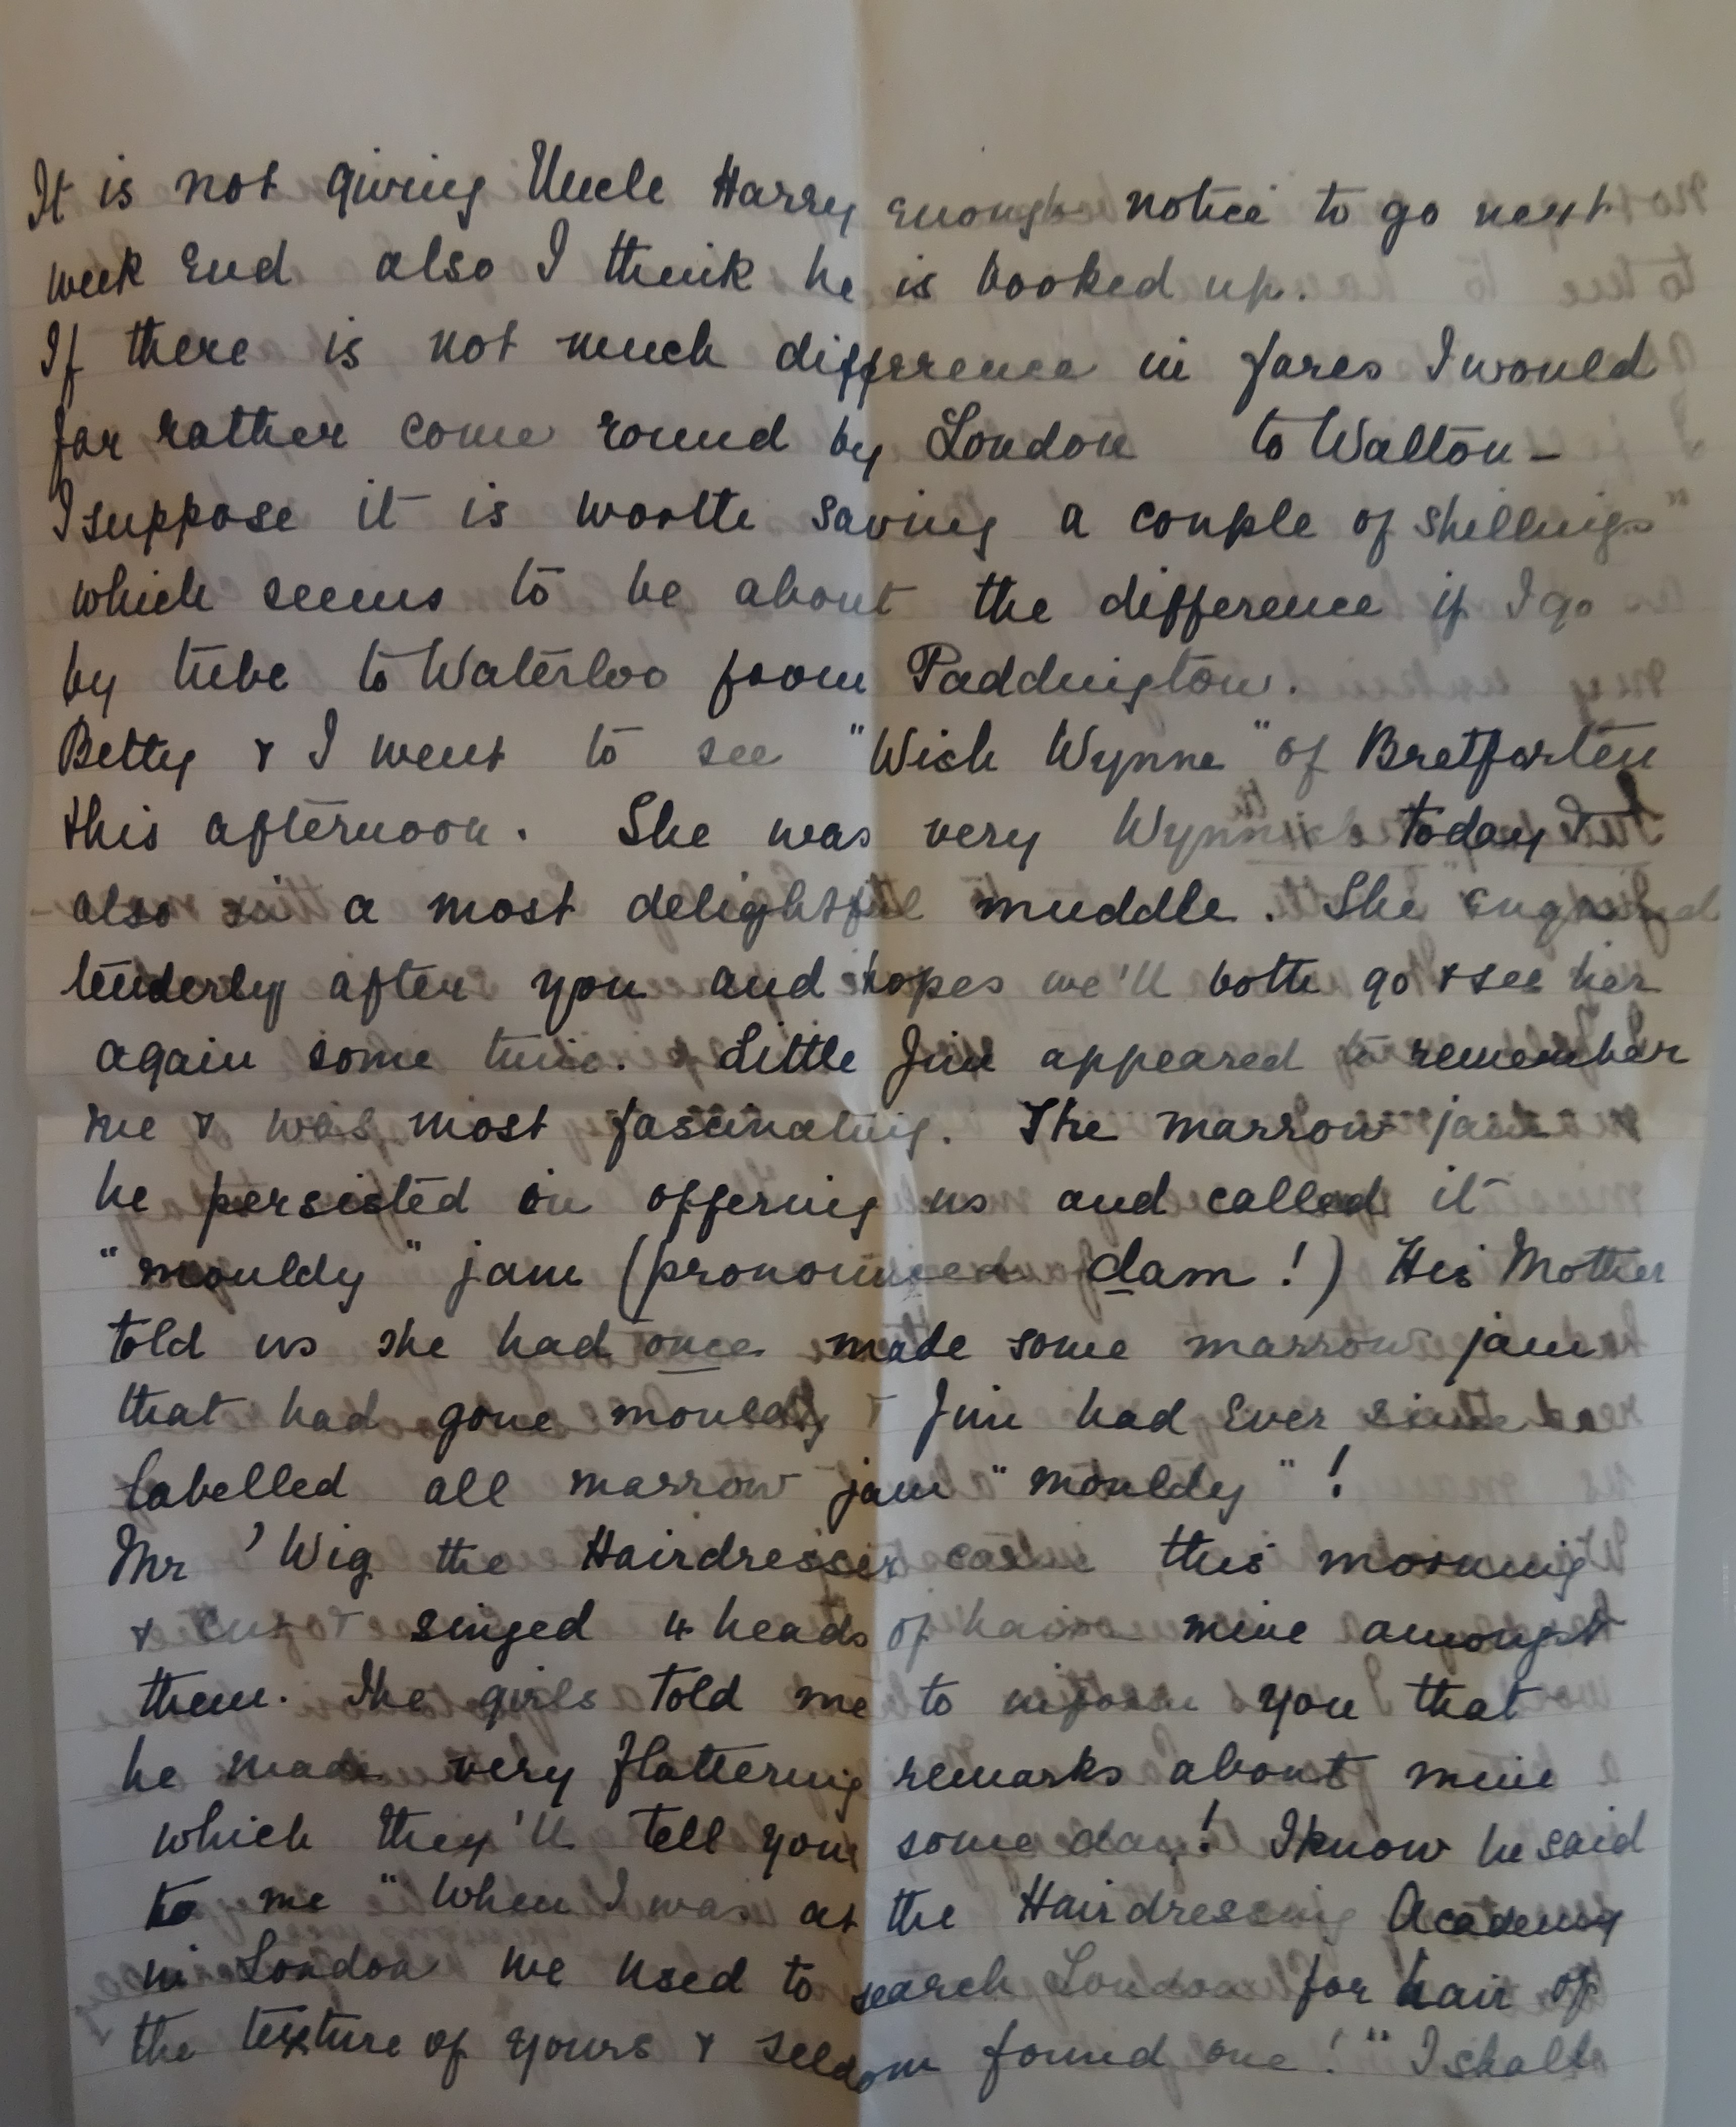 It is not giving Uncle Harry enough notice to go next
week end also I think he is booked up.
If there is not much difference in fares I would
far rather come round by London to Walton -
I suppose it is worth saving a couple of shillings"
which seems to be about the difference if I go
by tube to Waterloo from Paddington.
Betty & I went to see "Wick Wynne" of Bretforten
this afternoon. She was very today &
also in a most delightful muddle. She enquired
tenderly after you and hopes we'll both go & see her
again some time. Little Jim appeared to remember
me & was most fascinating. The marrow jam
he persisted in offering us and called it
"mouldy" jam (pronounced dam!) His Mother
told us she had once made some marrow jam
that had gone mouldy & Jim had ever since
labelled all marrow jam "mouldy"!
Mr 'Wig the Hairdresser came this morning
& cut & singed 4 heads of hair mine amongst
them. The girls told me to inform you that
he made very flattering remarks about mine
which they'll tell you some day! I know he said
to me "When I was at the Hairdressing Academy
in London we used to search London for hair of
the texture of yours & seldom found one!" I shall